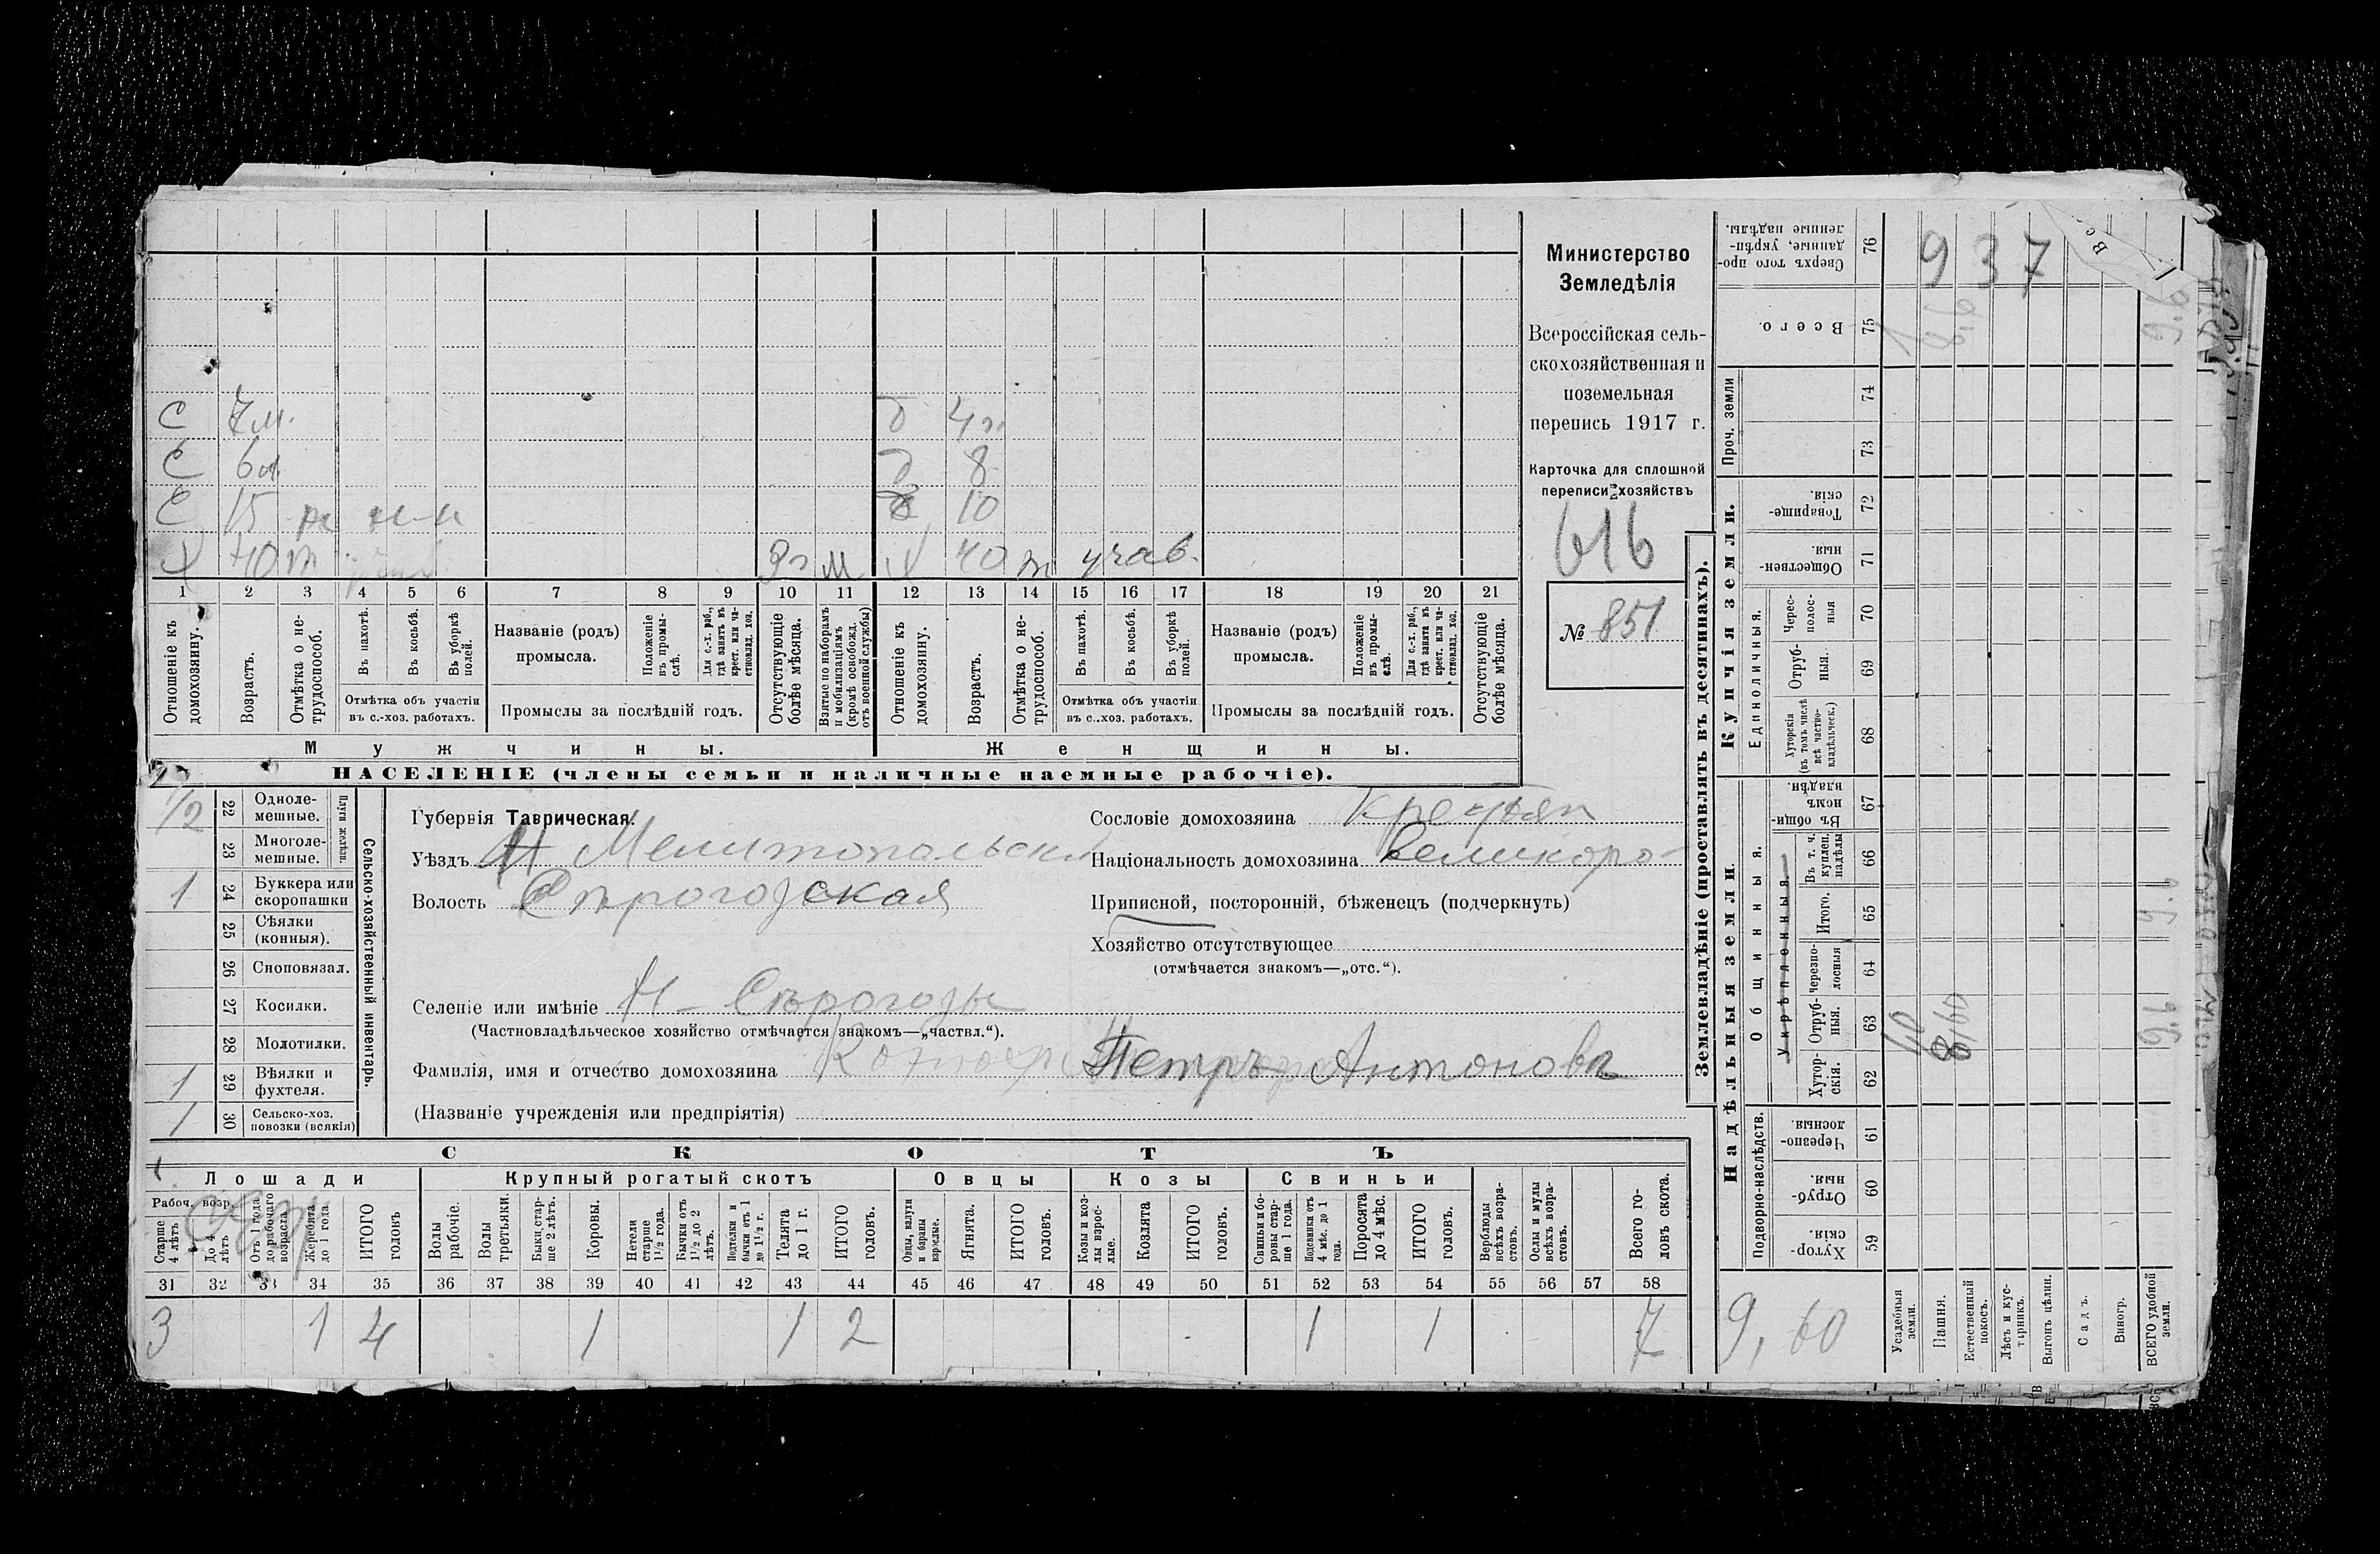 Министерство
Земледѣлія
Всероссійская сель-
скохозяйственная и
поземельная
перепись 1917 г.
Карточка для сплошной
переписи хозяйствъ
616
№ 851
С 7 м. д 4 г.
С 6 д 8
С 15 10
Х 40 т м Х 40 т
1 2 3 4 5 6 7 8 9 10 11 12 13 14 15 16 17 18 19 20 21
Отношеніе къ домохозяину.
Возрастъ.
Отмѣтка о не-трудоспособ.
Въ пахотѣ.
Въ косьбѣ.
Въ уборкѣ полей.
Отмѣтка объ участіи
въ с.-хоз. работахъ.
Названіе (родъ)
промысла.
Положеніе въ промы-слѣ.
Для с.-х. раб., гдѣ занятъ въ крест. или ча-стновлад. хоз.
Промыслы за послѣдній годъ.
Отсутствующіе болѣе мѣсяца.
Взятые по наборамъ и мобилизаціямъ (кромѣ освобожд. отъ военной службы)
Отношеніе къ домохозяину.
Возрастъ.
Отмѣтка о не-трудоспособ.
Въ пахотѣ.
Въ косьбѣ.
Въ уборкѣ полей.
Отмѣтка объ участіи
въ с.-хоз. работахъ.
Названіе (родъ)
промысла.
Положеніе въ промы-слѣ.
Для с.-х. раб., гдѣ занята въ крест. или ча-стновлад. хоз.
Промыслы за послѣдній годъ.
Отсутствующіе болѣе мѣсяца.
Мужчины. Женщины.
НАСЕЛЕНІЕ (члены семьи и наличные наемные рабочіе).
Сельско-хозяйственный инвентарь.
Плуги желѣзн.
1/2 22 Одноле-мешные.
23 Многоле-мешные.
1 24 Буккера или скоропашки
25 Сѣялки (конныя).
26 Сноповязал.
27 Косилки.
28 Молотилки.
1 29 Вѣялки и фухтеля.
1 30 Сельско-хоз. повозки (всякія)
Губернія Таврическая.
Уѣздъ Мелитопольскі
Волость Сѣрогозская
Селеніе или имѣніе Н-Сѣрогозы
(Частновладѣльческое хозяйство отмѣчается знакомъ—„частвл.“).
Фамилія, имя и отчество домохозяина Петръ Антоновъ
(Названіе учрежденія или предпріятія)
Сословіе домохозяина Крестьян
Національность домохозяина Великоро-
Приписной, посторонній, бѣженецъ (подчеркнуть)
Хозяйство отсутствующее
(отмѣчается знакомъ—„отс.“).
СКОТЪ
Лошади Крупный рогатый скотъ Овцы Козы Свиньи
Рабоч. возр.
Старше 4 лѣтъ
До 4 лѣтъ
Отъ 1 года до рабочаго возраста.
Жеребята до 1 года.
ИТОГО головъ
Волы рабочіе.
Волы третьяки.
Быки стар-ше 2 лѣтъ.
Коровы.
Нетели старше 1½ года.
Бычки отъ 1½ до 2 лѣтъ.
Подтелки и бычки отъ 1 до 1½ г.
Телята до 1 г.
ИТОГО головъ.
Овцы, валухи и бараны взрослые.
Ягнята.
ИТОГО головъ.
Козы и коз-лы взрос-лые.
Козлята
ИТОГО головъ.
Свиньи и бо-ровы стар-ше 1 года.
Подсвинки отъ 4 мѣс. до 1 года.
Поросята до 4 мѣс.
ИТОГО головъ.
Верблюды всѣхъ возра-стовъ.
Ослы и мулы всѣхъ возра-стовъ.
Всего го-ловъ скота.
31 32 33 34 35 36 37 38 39 40 41 42 43 44 45 46 47 48 49 50 51 52 53 54 55 56 57 58
3 1 4 1 1 2 1 1 7
Землевладѣніе (проставлять въ десятинахъ).
Купчія земли.
Надѣльныя земли.
Проч. земли
Единоличныя.
Общинныя.
Укрѣпленныя.
Подворно-наслѣдств.
76 Сверхъ того про-данные, укрѣп-ленные надѣлы.
75 Всего.
74
73
72 Товарище-скія.
71 Обществен-ныя.
70 Черес-полос-ныя
69 Отруб-ныя.
68 Хуторскія (въ томъ числѣ всѣ частно-владѣльческ.)
67 Въ общин-номъ владѣн.
66 Въ т. ч. куплен. надѣлы
65 Итого.
64 Черезпо-лосныя
63 Отруб-ныя.
62 Хутор-скія.
61 Черезпо-лосныя.
60 Отруб-ныя.
59 Хутор-скія.
937
9,60
Усадебныя земли.
Пашня.
Естественный покосъ.
Лѣсъ и кус-тарникъ.
Выгонъ цѣлин.
Садъ.
Виногр.
ВСЕГО удобной земли.